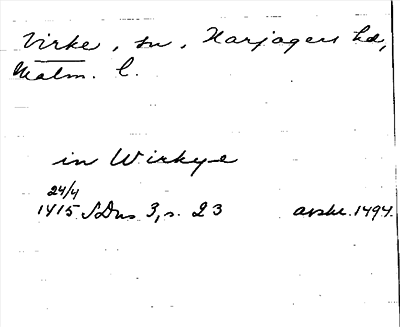 Virke, sn, Harjagers hd,
Malm. l.
in Wirkye
24/4
1415 SDns 3, s. 23 avskr. 1494.